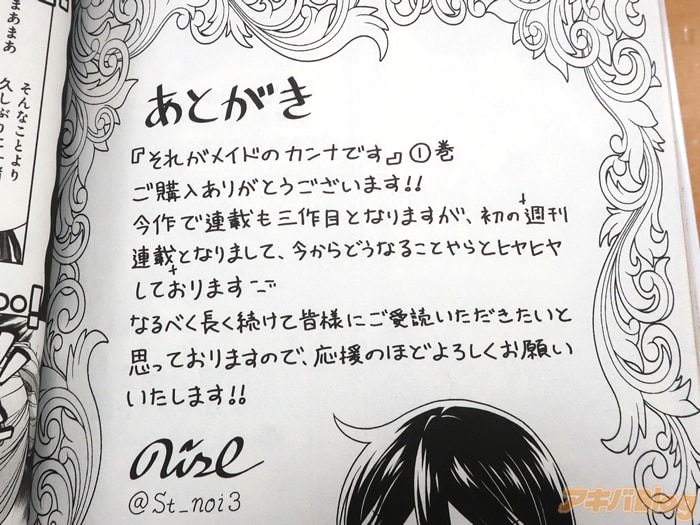 あとがき
『それがメイドのカンナです』①巻
ご購入ありがとうございます!!
今作で連載も三作目となりますが、初の週刊
連載となりまして、今からどうなることやらとヒヤヒヤ
しております
なるべく長く続けて皆様にご愛読いただきたいと
思っておりますので、応援のほどよろしくお願い
いたします!!
@St_noi3
まあまあ
そんなことより
アキバBlog